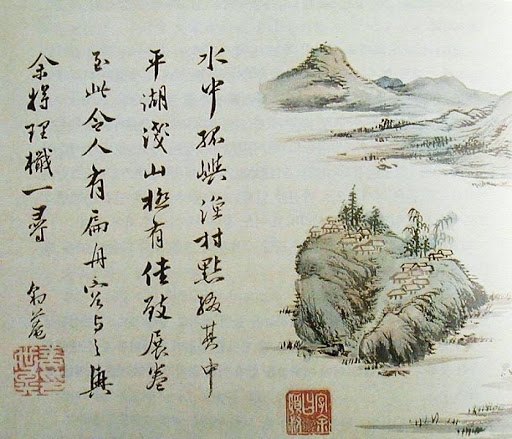 水中孤嶼漁村點綴其中
平湖淺山極有佳致展卷
至此令人有扁舟容与之興
余将理檝一尋
菴